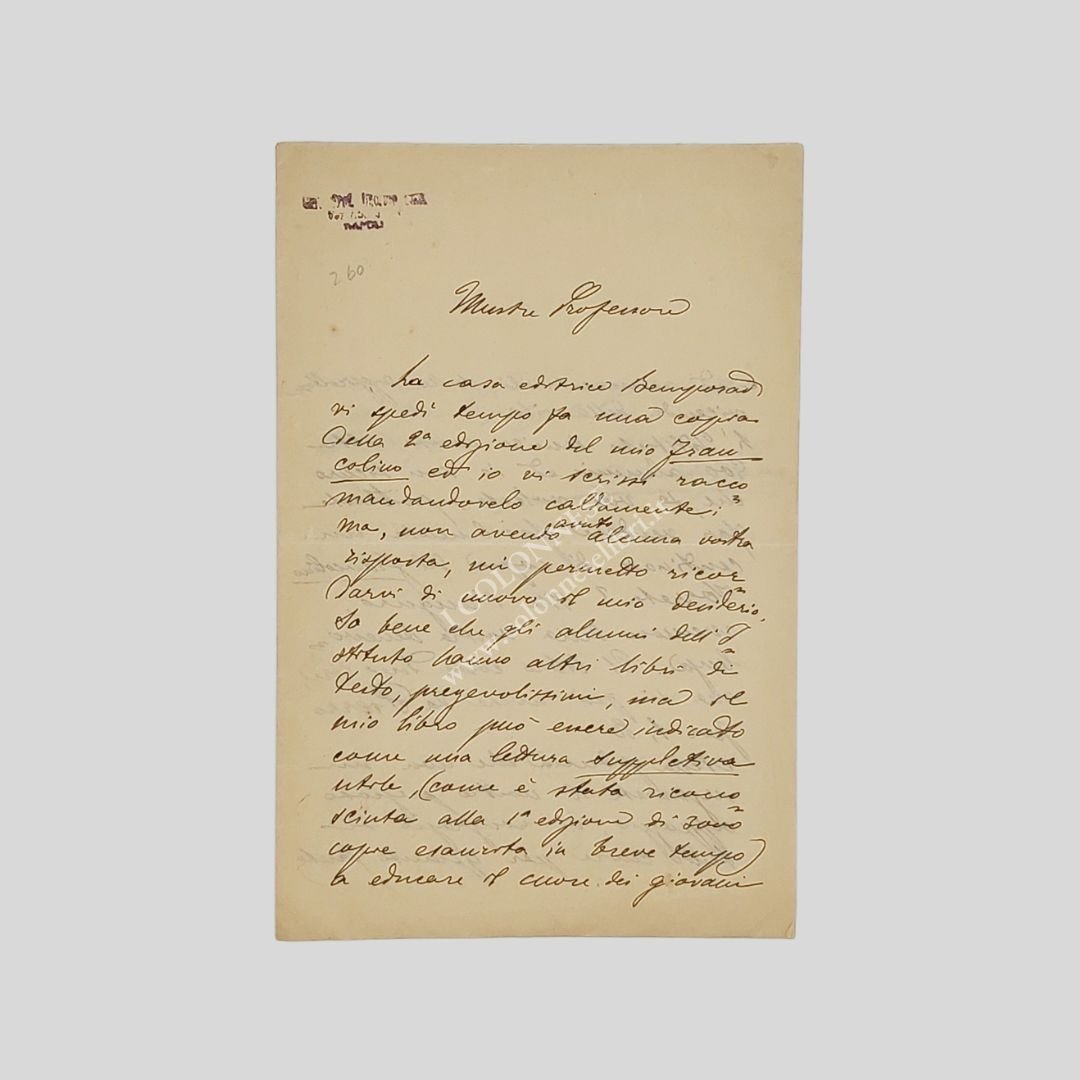 NAPOLI
260
Illustre Professore
La casa editrice Bemporad
vi spedì tempo fa una copia
della 2ª edizione del mio Fran
colino ed io vi scrissi racco
mandandovelo caldamente;
ma, non avendo avuto alcuna vostra
risposta, mi permetto ricor
darvi di nuovo il mio desiderio.
So bene che gli alunni dell'I
stituto hanno altri libri di
testo, pregevolissimi, ma il
mio libro può essere indicato
come una lettura suppletiva
utile, (come è stata ricono
sciuta alla 1ª edizione di 3000
copie esaurita in breve tempo)
a educare il cuore dei giovani
I COLONNESE
www.colonnesellari.it